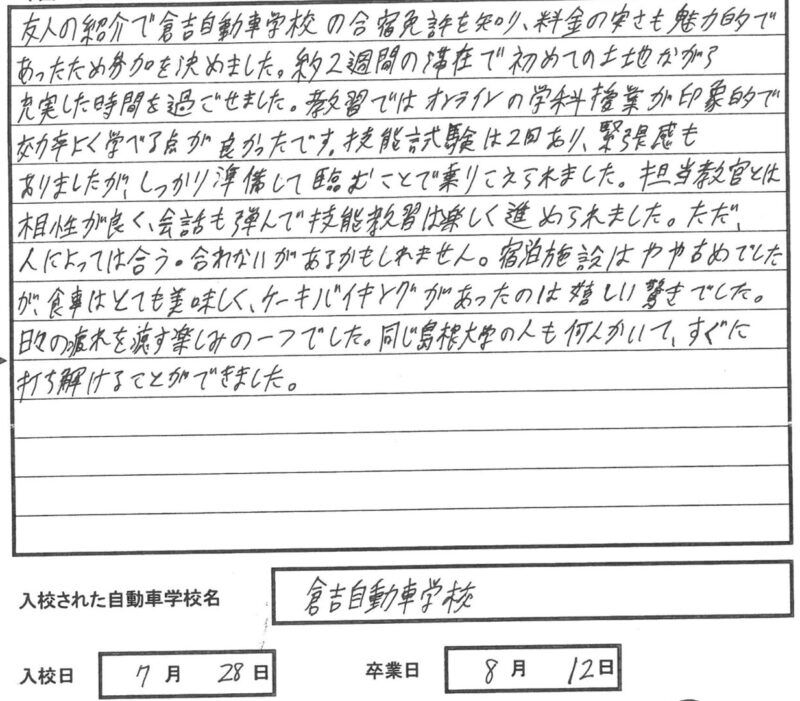 友人の紹介で倉吉自動車学校の合宿免許を知り、料金の安さも魅力的で
あったため参加を決めました。約2週間の滞在で初めての土地ながら
充実した時間を過ごせました。教習ではオンラインの学科授業が印象的で
効率よく学べる点が良かったです。技能試験は2回あり、緊張感も
ありましたが、しっかり準備して臨むことで乗りこえられました。担当教官とは
相性が良く、会話も弾んで技能教習は楽しく進められました。ただ、
人によっては合う・合わないがあるかもしれません。宿泊施設はやや古めでした
が、食事はとても美味しく、ケーキバイキングがあったのは嬉しい驚きでした。
日々の疲れを癒す楽しみの一つでした。同じ島根大学の人も何人かいて、すぐに
打ち解けることができました。
入校された自動車学校名 倉吉自動車学校
入校日 7月 28日 卒業日 8月 12日